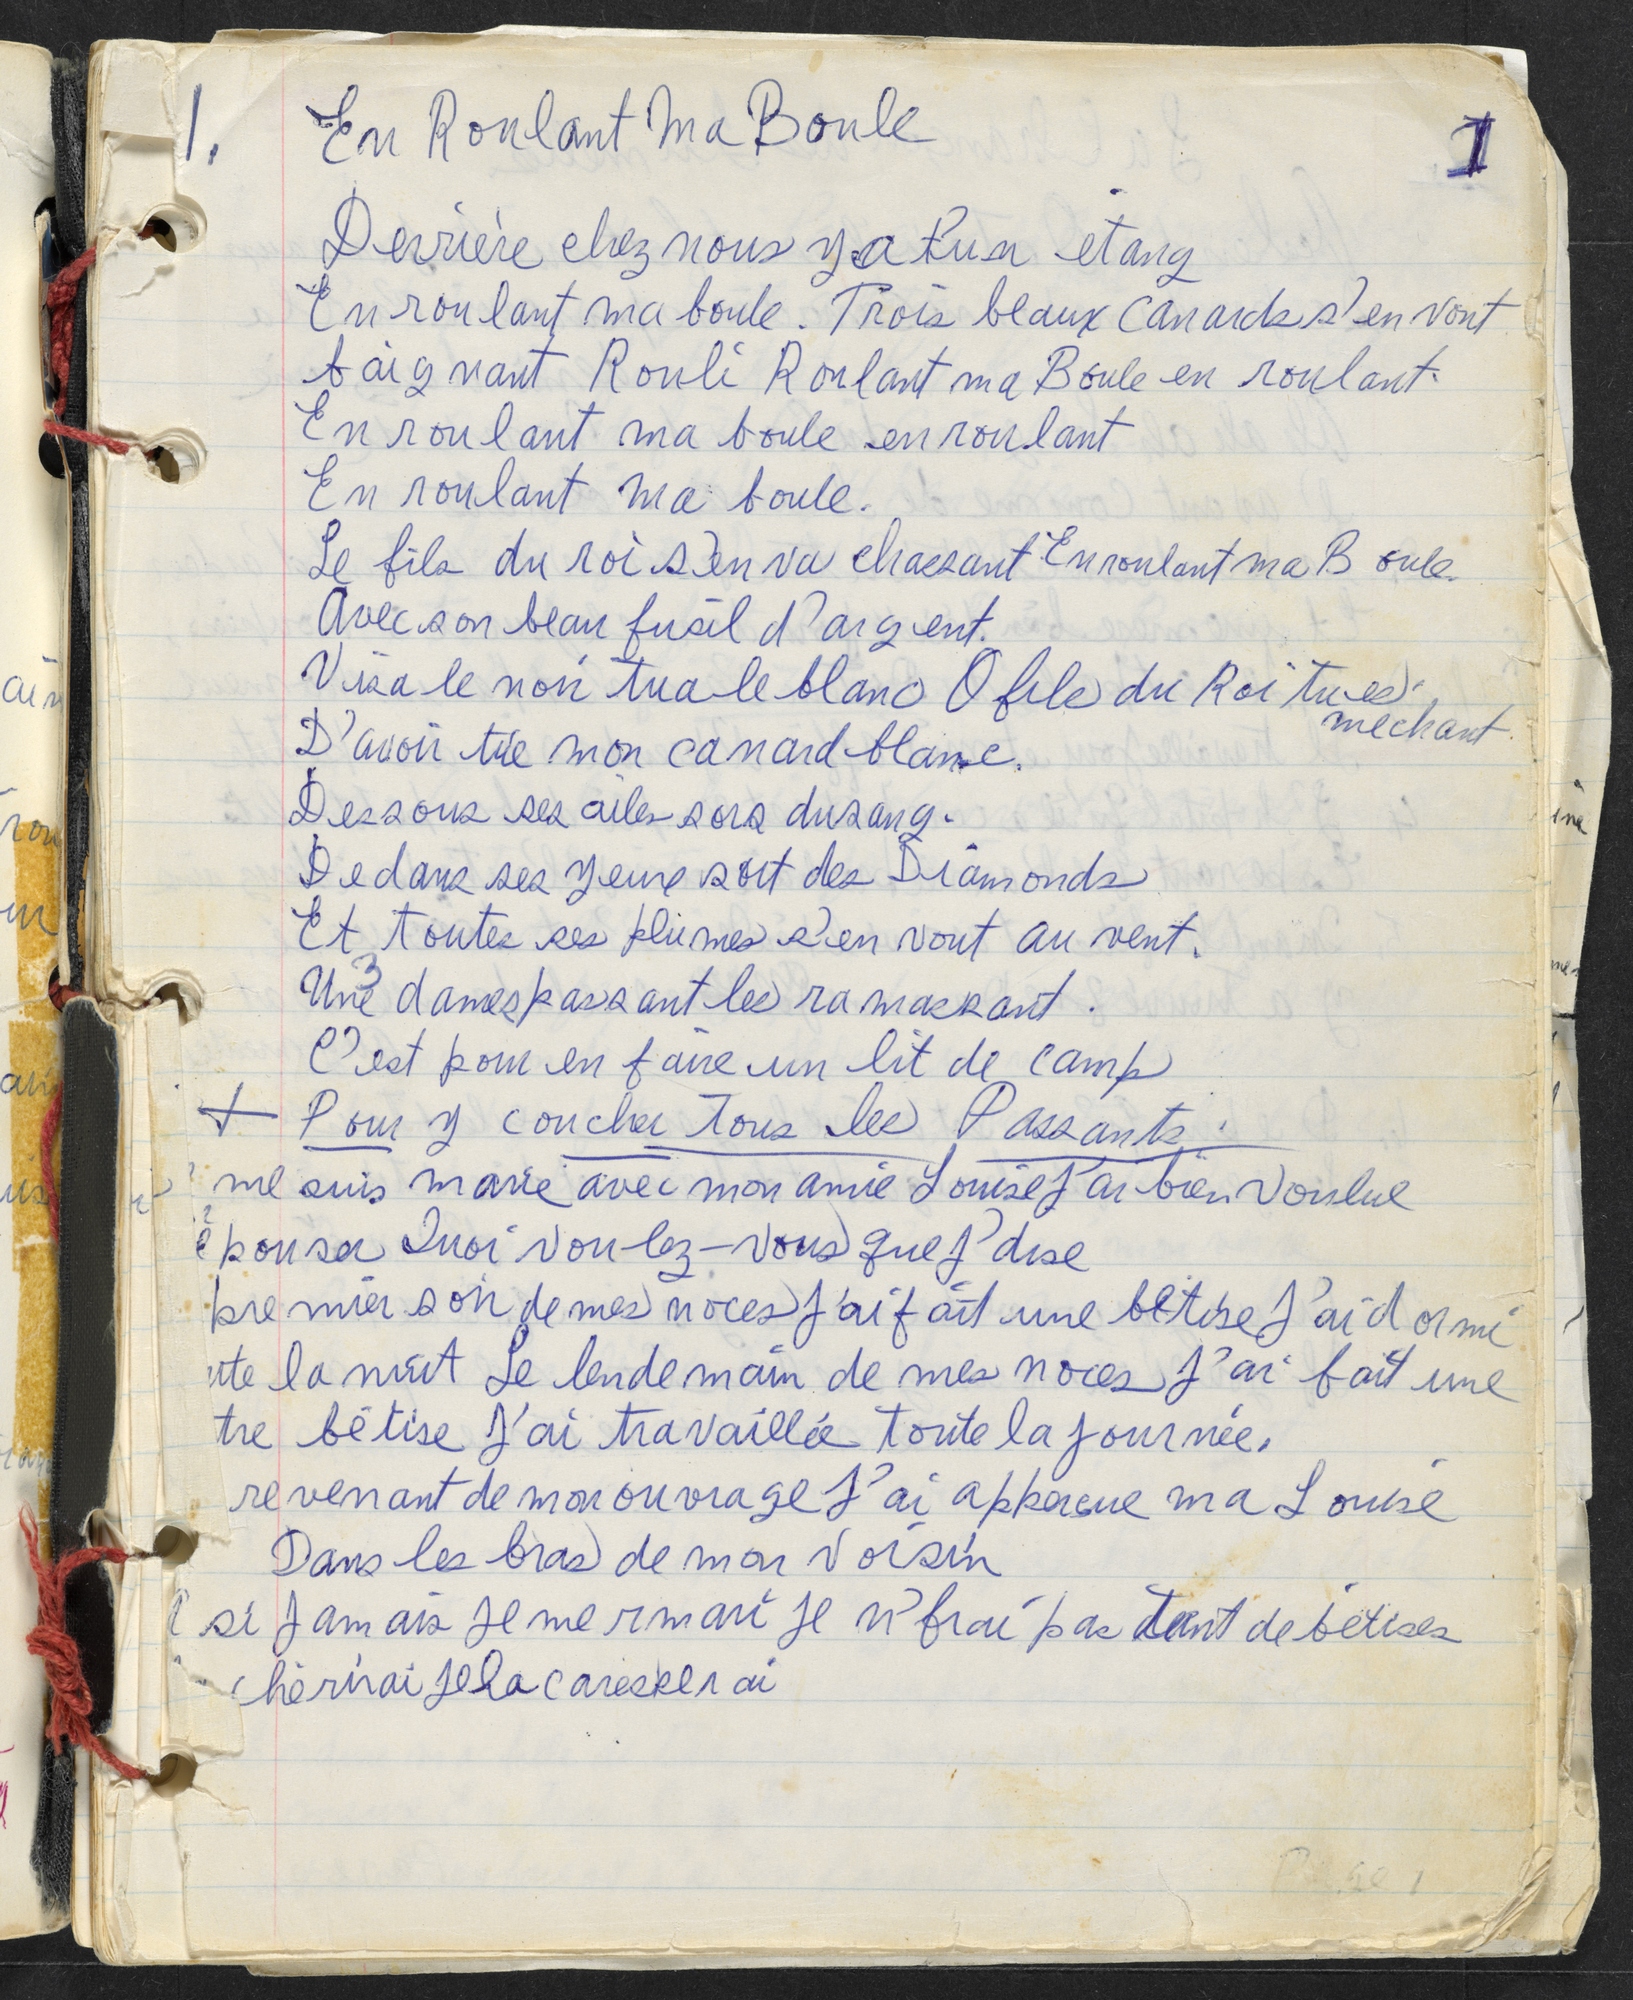 1. En Roulant Ma Boule 1
Derrière chez nous y a tun étang
En roulant ma boule. Trois beaux canards s'en vont
baignant Rouli Roulant ma Boule en roulant.
En roulant ma boule en roulant
En roulant ma boule.
Le fils du roi s'en va chassant En roulant ma Boule.
Avec son beau fusil d'argent.
Visa le noir tua le blanc O fils du Roi tu es
mechant.
D'avoir tué mon canard blanc.
Dessous ses ailes sors du sang.
Dedans ses yeux sort des Diamonds
Et toutes ses plumes s'en vont au vent.
3
Une dames passant les ramassant.
C'est pour en faire un lit de camp
+ Pour y coucher Tous les Passants.
me suis marié avec mon amie Louise J'ai bien voulue
épouser Quoi voulez-vous que J'dise
premier soir de mes noces J'ai fait une bêtise J'ai dormi
ute la nuit Le lendemain de mes noces J'ai fait une
tre bêtise J'ai travaillée toute la Journée.
revenant de mon ouvrage J'ai apperçue ma Louise
Dans les bras de mon voisin
si Jamais Je me rmari Je n'frai pas tant de bêtises
chérirai Je la caresserai
Page 1